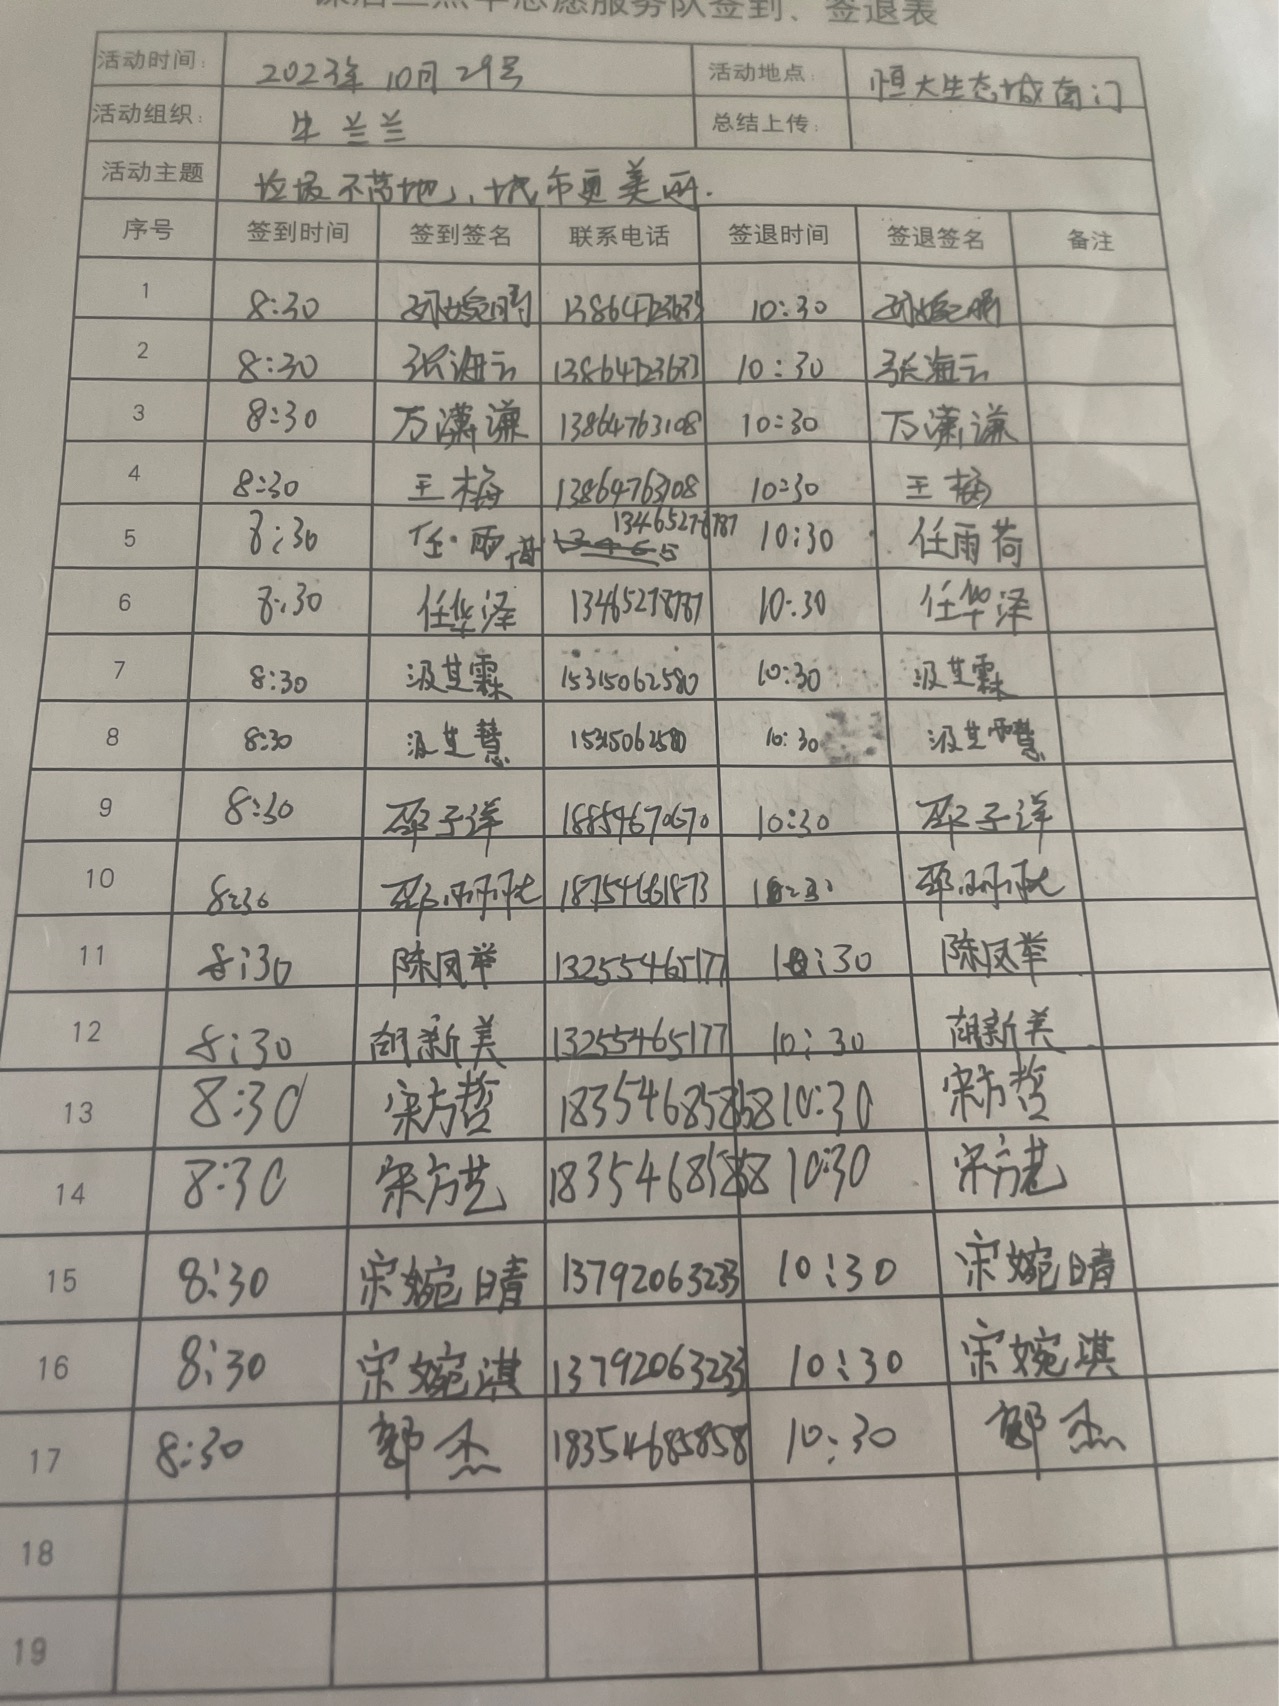 课后三点半志愿服务队签到、签退表
活动时间: 2023年10月29号 活动地点: 恒大生态城南门
活动组织: 牛兰兰 总结上传:
活动主题 垃圾不落地,城市更美丽.
序号 签到时间 签到签名 联系电话 签退时间 签退签名 备注
1 8:30 13864723633 10:30
2 8:30 张海云 13864723633 10:30 张海云
3 8:30 万潇谦 13864763108 10:30 万潇谦
4 8:30 王梅 13864763108 10:30 王梅
5 8:30 任雨荷 13465278787 10:30 任雨荷
6 8:30 任华泽 13465278787 10:30 任华泽
7 8:30 汲芝霖 15315062580 10:30 汲芝霖
8 8:30 汲芝慧 15315062580 10:30 汲芝慧
9 8:30 邵子洋 18854670670 10:30 邵子洋
10 8:30 18754661873 10:30
11 8:30 陈凤举 13255465177 10:30 陈凤举
12 8:30 胡新美 13255465177 10:30 胡新美
13 8:30 宋方哲 18354685858 10:30 宋方哲
14 8:30 宋方艺 18354685858 10:30 宋方艺
15 8:30 宋婉晴 13792063233 10:30 宋婉晴
16 8:30 宋婉淇 13792063233 10:30 宋婉淇
17 8:30 郭杰 18354685858 10:30 郭杰
18
19